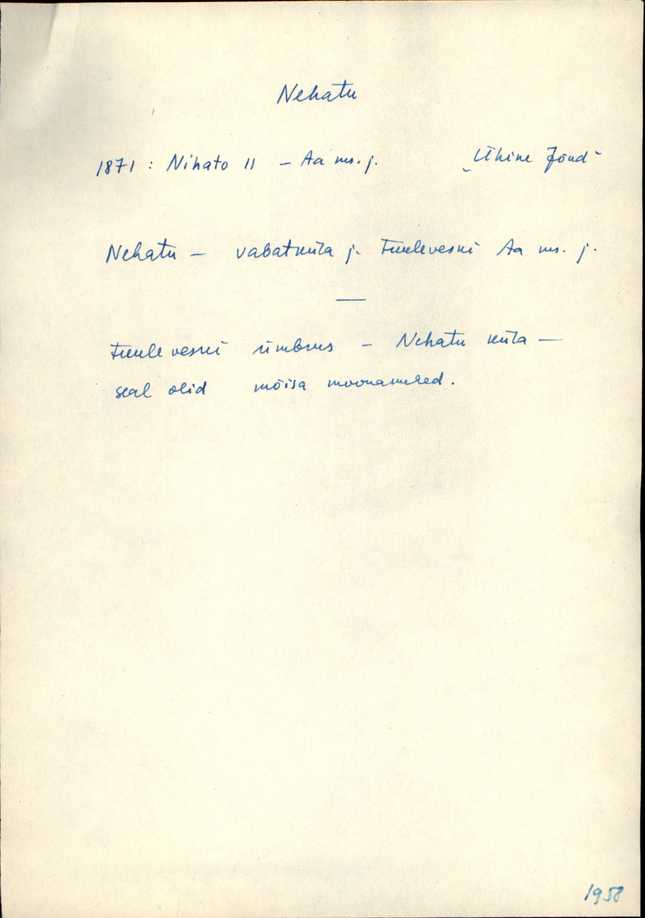 Nehatu
1871 : Nihato II – Aa ms. j. „Ühine fond"
Nehatu – vabatküla j. tuuleveski Aa ms. j.
—
tuuleveski ümbrus – Nehatu küla –
seal olid mõisa moonamehed.
1958